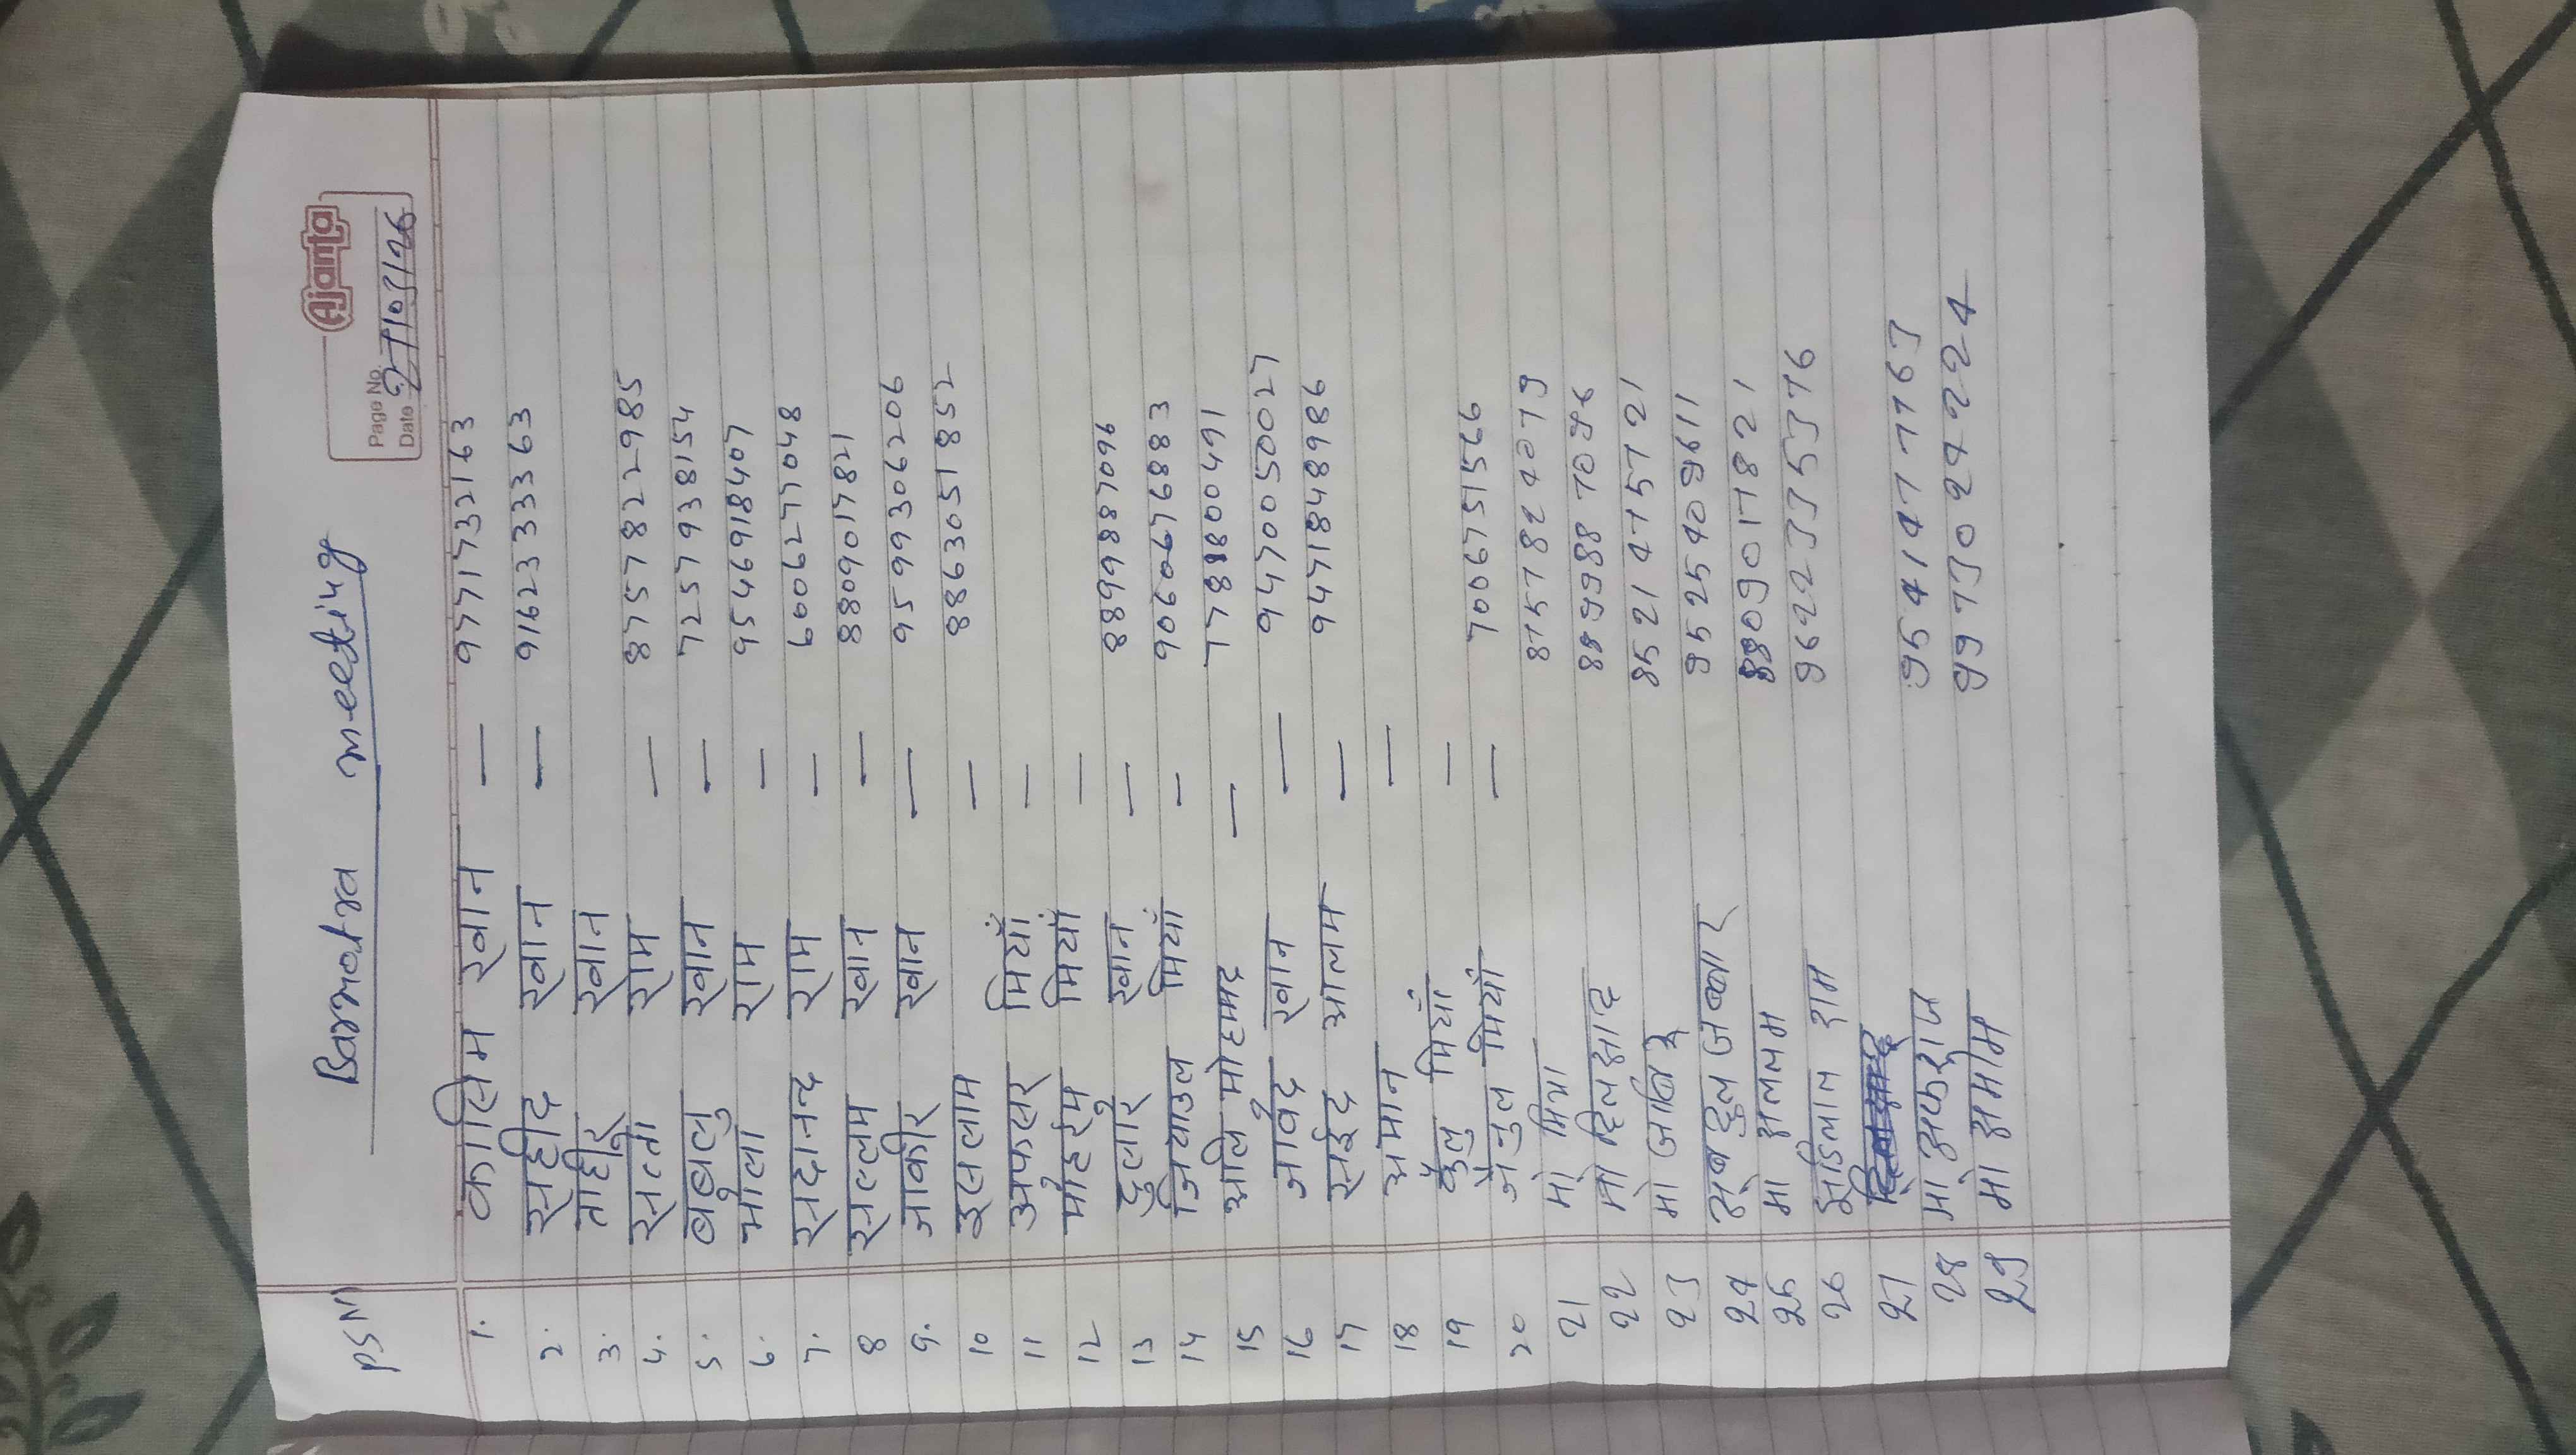 Ajanta
Page No.
Date 27/03/26
PSM Barmotra meeting
1. कासिम खान — 9771732163
2. सहीद खान — 9162333363
3. ताहीर खान
4. सत्ता राम — 8757822985
5. बबलु खान — 7257938154
6. भोला राम — 9546918407
7. सदानन्द राम — 6006277048
8 सल्लम खान — 8809017821
9. जाकीर खान — 9599306206
10 इसलाम — 8863051852
11 अफसर मियाँ —
12 मोहर्रम मियाँ —
13 दुलारे खान — 8899887096
14 जियाउल मियाँ — 9060676883
15 अलि मोहम्मद — 7788800491
16 जावेद खान — 9470050027
17 सईद आलम — 9471848986
18 अमान —
19 मियाँ —
20 जेनुल मियाँ — 7006751566
21 मो मिया 8757824079
22 मो दिलशाद 8899887096
23 मो जाबिर 8521475721
24 जब्बार 9525409611
25 मो सलाम 8809017821
26 राम 9622335376
27
28 मो सफराज 9541477763
29 मो शमीम 9973024224